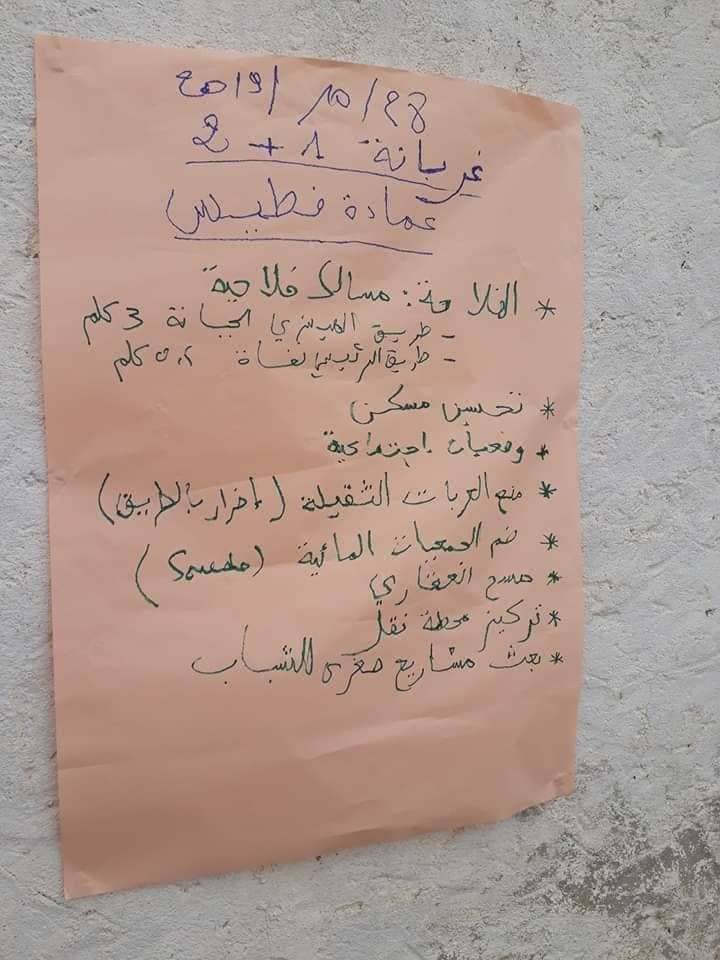 28/10/2019
غربانة 1 + 2
عمادة فطيس
* الفلاحة: مسالك فلاحية
- طريق الجبانة 3 كلم
- طريق كلم
* تحسين مسكن
* وضعيات إجتماعية
* منع العربات الثقيلة (إضرار بالطريق)
* ضم الجمعيات المائية (Sonede)
* مسح العقاري
* تركيز محطة نقل
* بعث مشاريع صغرى للشباب